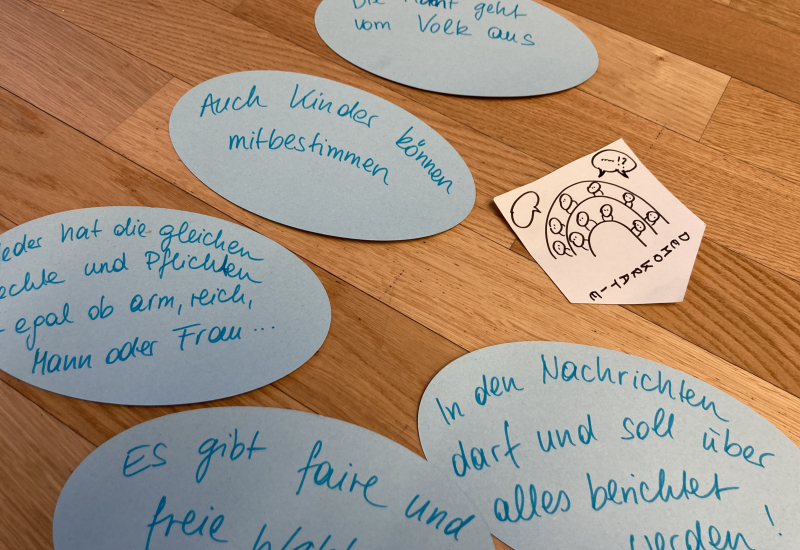 Die Macht geht
vom Volk aus
Auch Kinder können
mitbestimmen
---!?
DEMOKRATIE
Jeder hat die gleichen
Rechte und Pflichten
- egal ob arm, reich,
Mann oder Frau...
In den Nachrichten
darf und soll über
alles berichtet
werden!
Es gibt faire und
freie